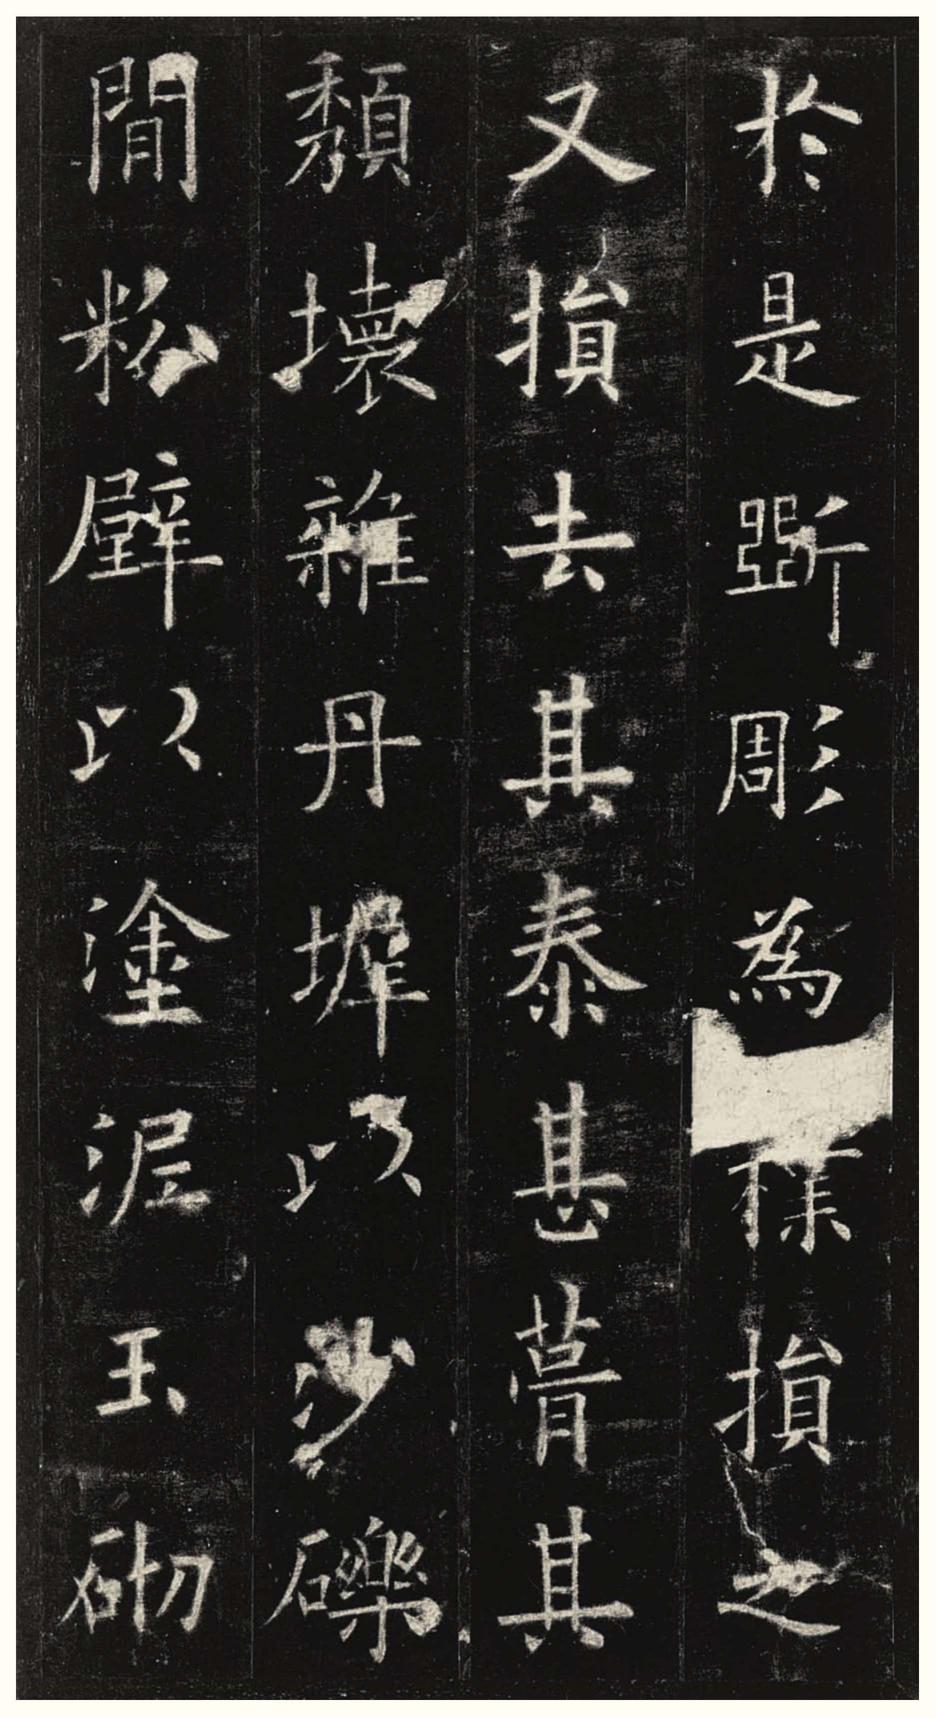 於是斲彫為樸損之
又損去其泰甚葺其
頽壞雜丹墀以沙礫
間粉壁以塗泥玉砌